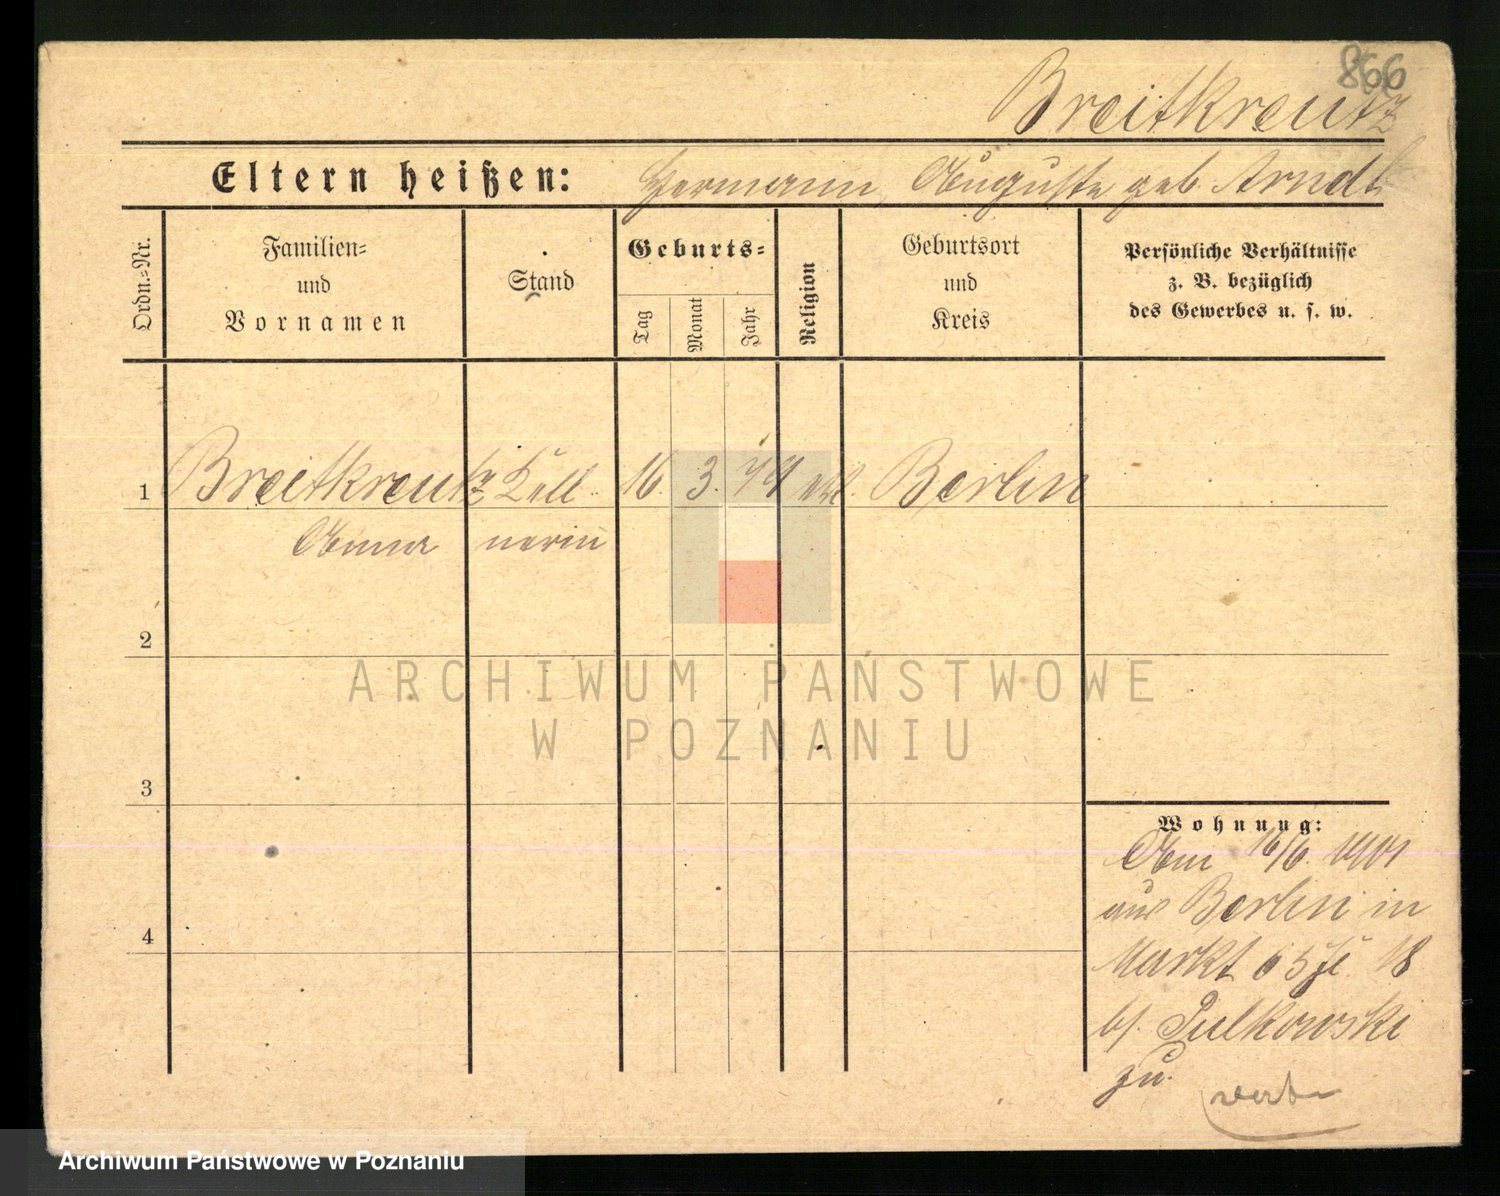 866
Breitkreutz
Eltern heißen: Hermann, Auguste geb. Arndt
Ordn.=Nr.
Familien=
und
Vornamen
Stand
Geburts=
Tag
Monat
Jahr
Religion
Geburtsort
und
Kreis
Persönliche Verhältnisse
z. B. bezüglich
des Gewerbes u. s. w.
1 Breitkreutz Kell 16. 3. 79 Berlin
Anna nerin
2
3
4
Wohnung:
Am 16/6. 1901
aus Berlin in
Markt 65
bs. Pulkowski
zu.
ARCHIWUM PAŃSTWOWE
W POZNANIU
Archiwum Państwowe w Poznaniu